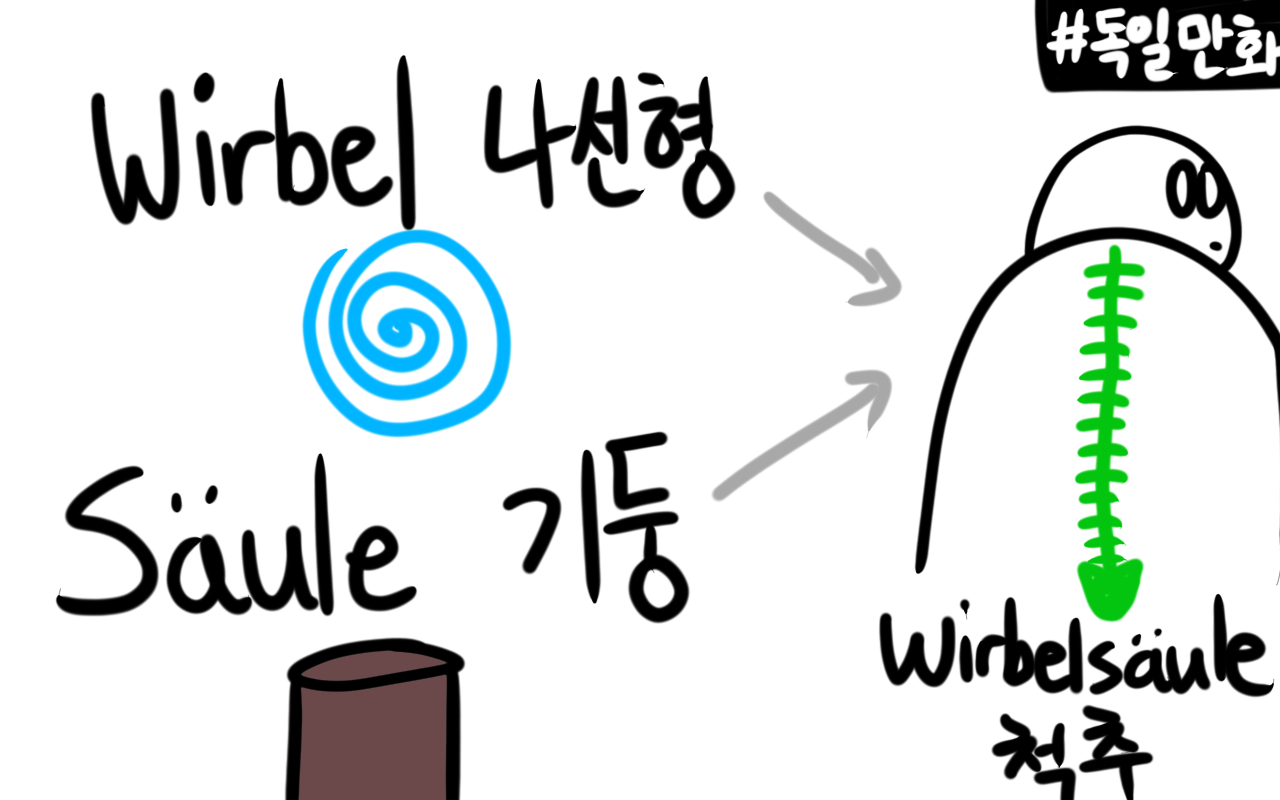 #독일만화
Wirbel 나선형
Säule 기둥
Wirbelsäule
척추